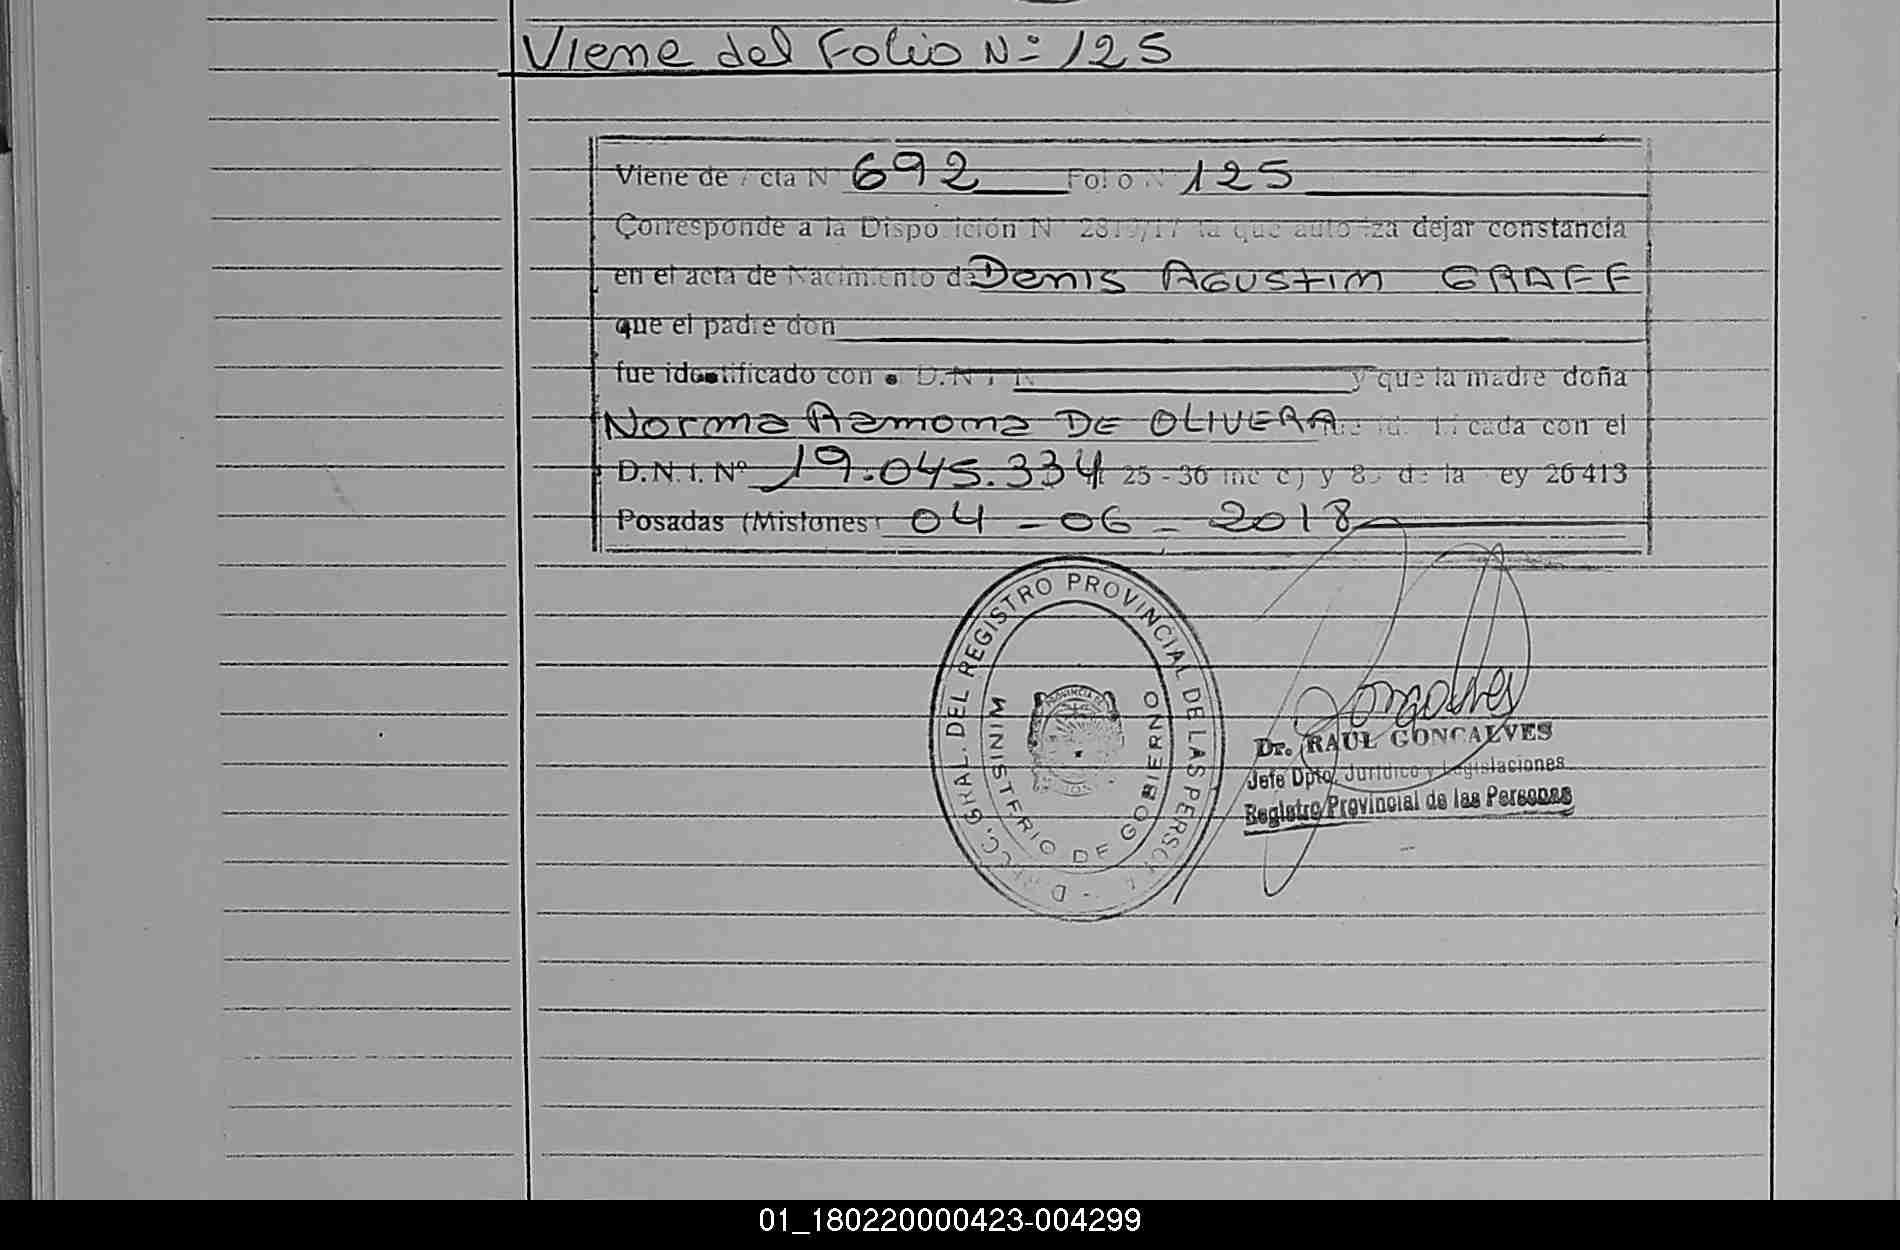 Viene del Folio Nº 125
Viene de Acta N 692 Folio N 125
Corresponde a la Disposición N 2819/17 la que autoriza dejar constancia
en el acta de Nacimiento de Denis Agustin GRAFF
que el padre don
fue identificado con D.N.I N y que la madre doña
Norma Ramona DE OLIVERA cada con el
D.N.I. Nº 19.045.334 25-36 inc c) y 8 de la ey 26413
Posadas (Misiones) 04-06-2018
DIRECC. GRAL. DEL REGISTRO PROVINCIAL DE LAS PERSONAS
MINISTERIO DE GOBIERNO
PROVINCIA DE
Goncalves
Dr. RAUL GONCALVES
Jefe Dpto. Jurídico y Legislaciones
Registro Provincial de las Personas
01_180220000423-004299